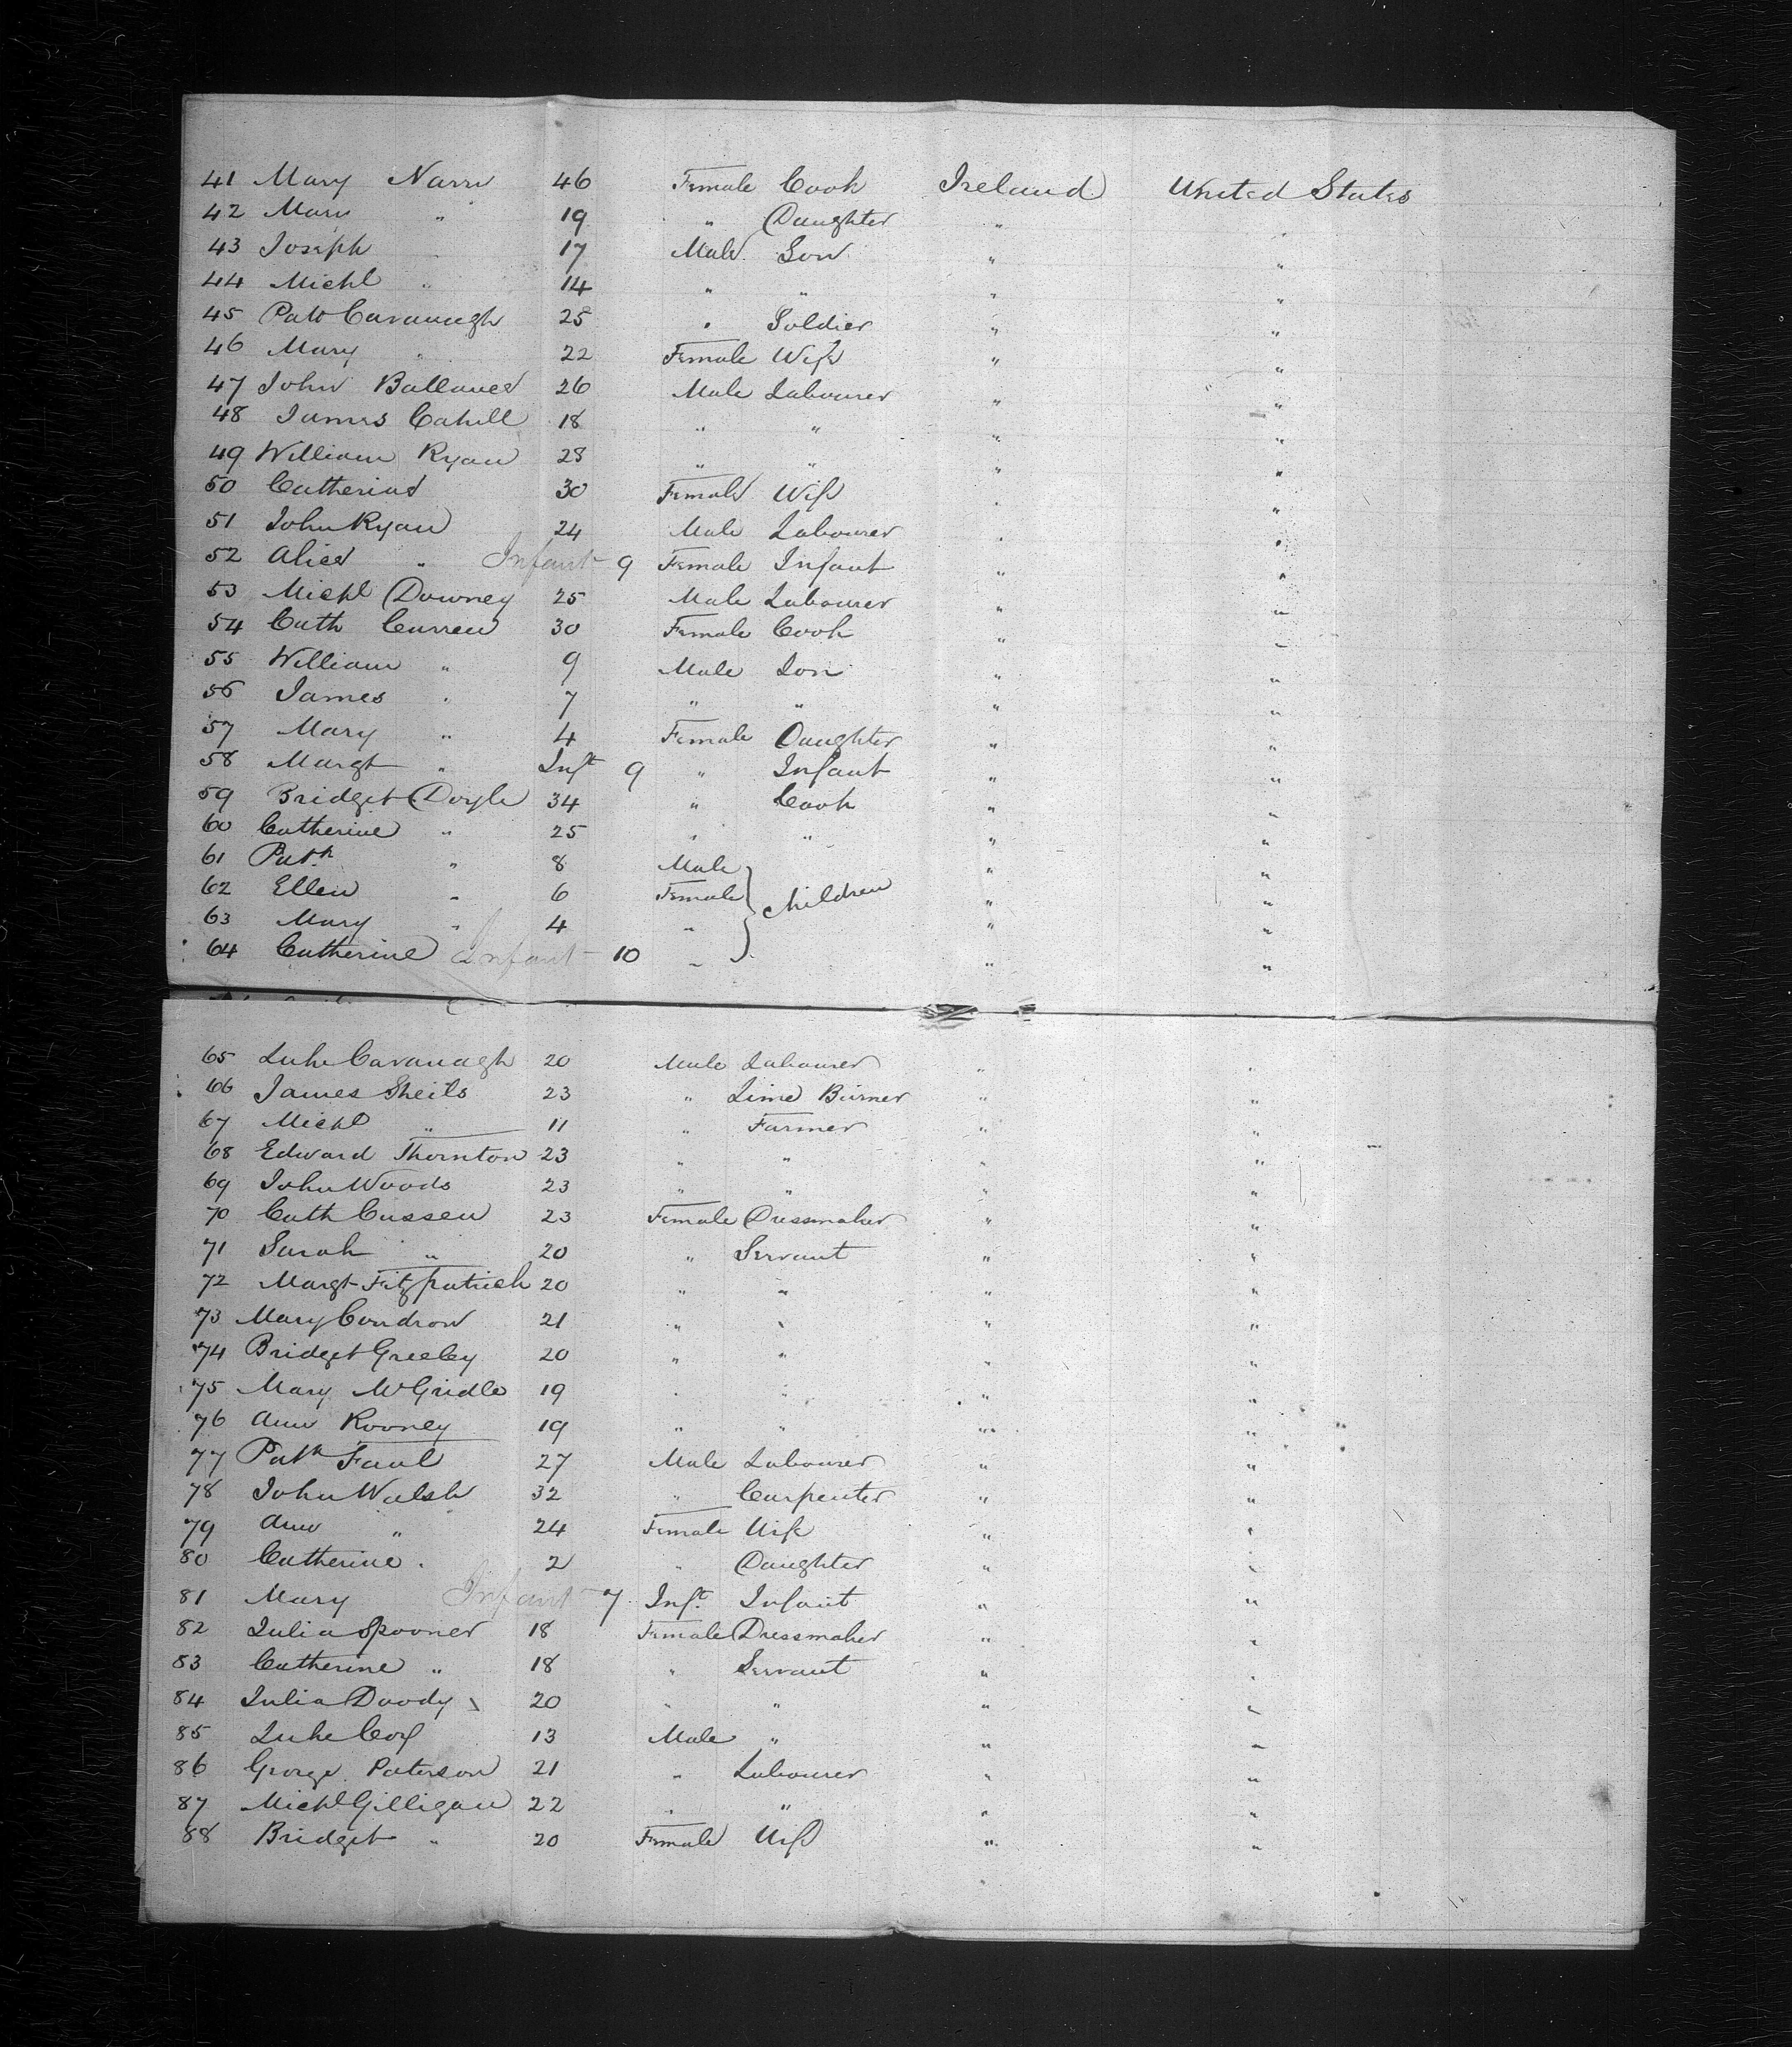 41 Mary Narry 46 Female Cook Ireland United States
42 Mary " 19 " Daughter " "
43 Joseph " 17 Male Son " "
44 Michl " 14 " " " "
45 Patk Cavanagh 25 " Soldier " "
46 Mary " 22 Female Wife " "
47 John Ballance 26 Male Labourer " "
48 James Cahill 18 " " " "
49 William Ryan 28 " " " "
50 Catherine 30 Female Wife " "
51 John Ryan 24 Male Labourer " "
52 Alice " Infant 9 Female Infant " "
53 Michl Downey 25 Male Labourer " "
54 Cath Curren 30 Female Cook " "
55 William " 9 Male Son " "
56 James " 7 " " " "
57 Mary " 4 Female Daughter " "
58 Margt " Inft 9 " Infant " "
59 Bridget Doyle 34 " Cook " "
60 Catherine " 25 " " " "
61 Patk " 8 Male " "
62 Ellen " 6 Female Children " "
63 Mary " 4 " " "
64 Catherine Infant 10 " " "
65 Luke Cavanagh 20 Male Labourer " "
66 James Sheils 23 " Lime Burner " "
67 Michl " 11 " Farmer " "
68 Edward Thornton 23 " " " "
69 John Woods 23 " " " "
70 Cath Cussen 23 Female Dressmaker " "
71 Sarah " 20 " Servant " "
72 Margt Fitzpatrick 20 " " " "
73 Mary Condron 21 " " " "
74 Bridget Greeley 20 " " " "
75 Mary McGridle 19 " " " "
76 Ann Rooney 19 " " " "
77 Patk Faul 27 Male Labourer " "
78 John Walsh 32 " Carpenter " "
79 Ann " 24 Female Wife " "
80 Catherine " 2 " Daughter " "
81 Mary Infant 7 Inft Infant " "
82 Julia Spooner 18 Female Dressmaker " "
83 Catherine " 18 " Servant " "
84 Julia Doody 20 " " " "
85 Luke Coy 13 Male " " "
86 George Paterson 21 " Labourer " "
87 Michl Gilligan 22 " " " "
88 Bridget " 20 Female Wife " "